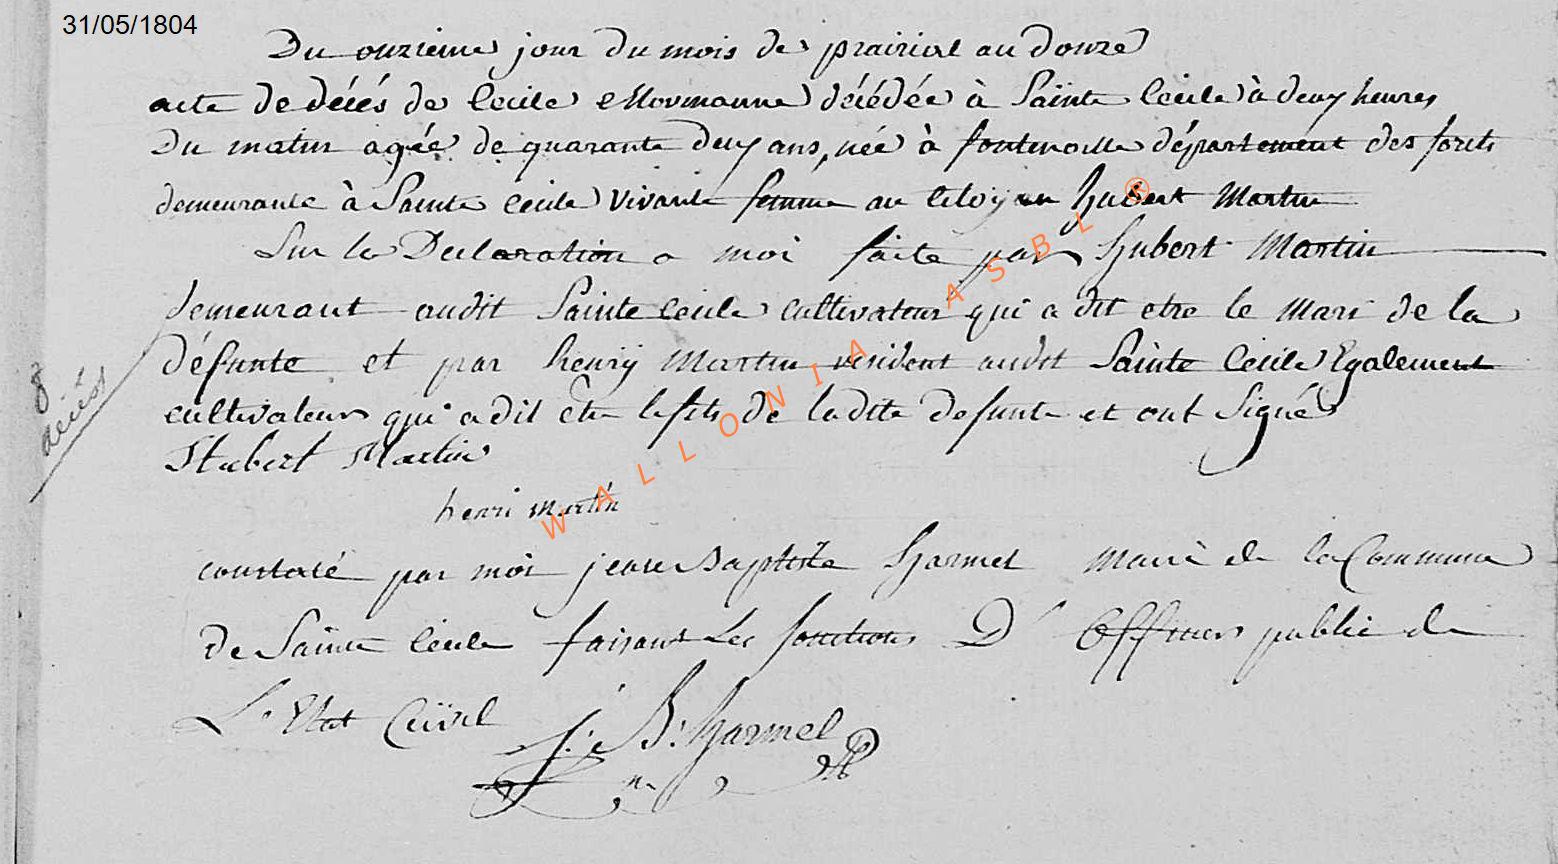 31/05/1804
Du onzieme jour du mois de prairial an douze
acte de décés de Cecile décédée à Sainte Cécile à deux heures
du matin agée de quarante deux ans, née à fontenoille département des forets
demeurante à Sainte Cécile vivante femme au Citoyen hubert Martin
Sur la Declaration a moi faite par Hubert Martin
demeurant audit Sainte Cecile cultivateur qui a dit etre le Mari de la
défunte et par henrÿ Martin résident audit Sainte Cecile Egalement
cultivateur qui a dit etre le fils de ladite defunte et ont Signé
Hubert Martin
henri martin
constaté par moi jean Baptiste Harmel Maire de la Commune
de Sainte Cécile faisant Les fonctions D' Officier public de
L'Etat Civil J. B. Harmel
8
décés
WALLONIA ASBL ®